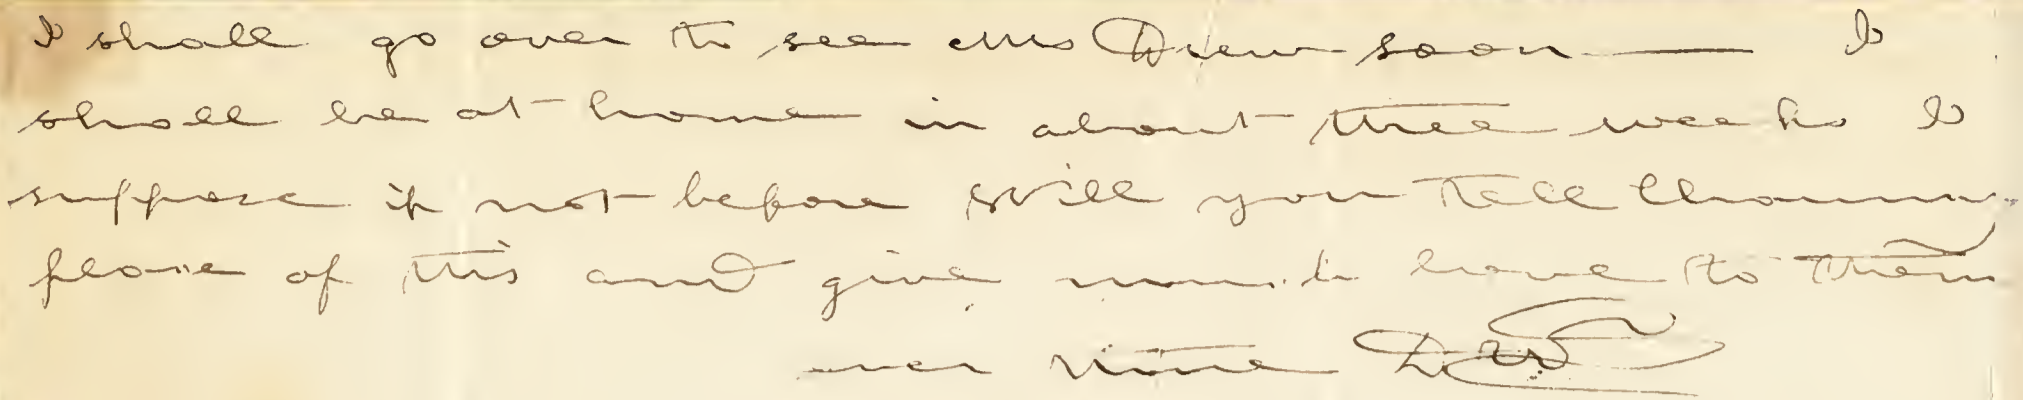 I shall go over to see Mrs Drew soon — I
shall be at home in about three weeks I
suppose if not before Will you tell
please of this and give much love to them
ever thine